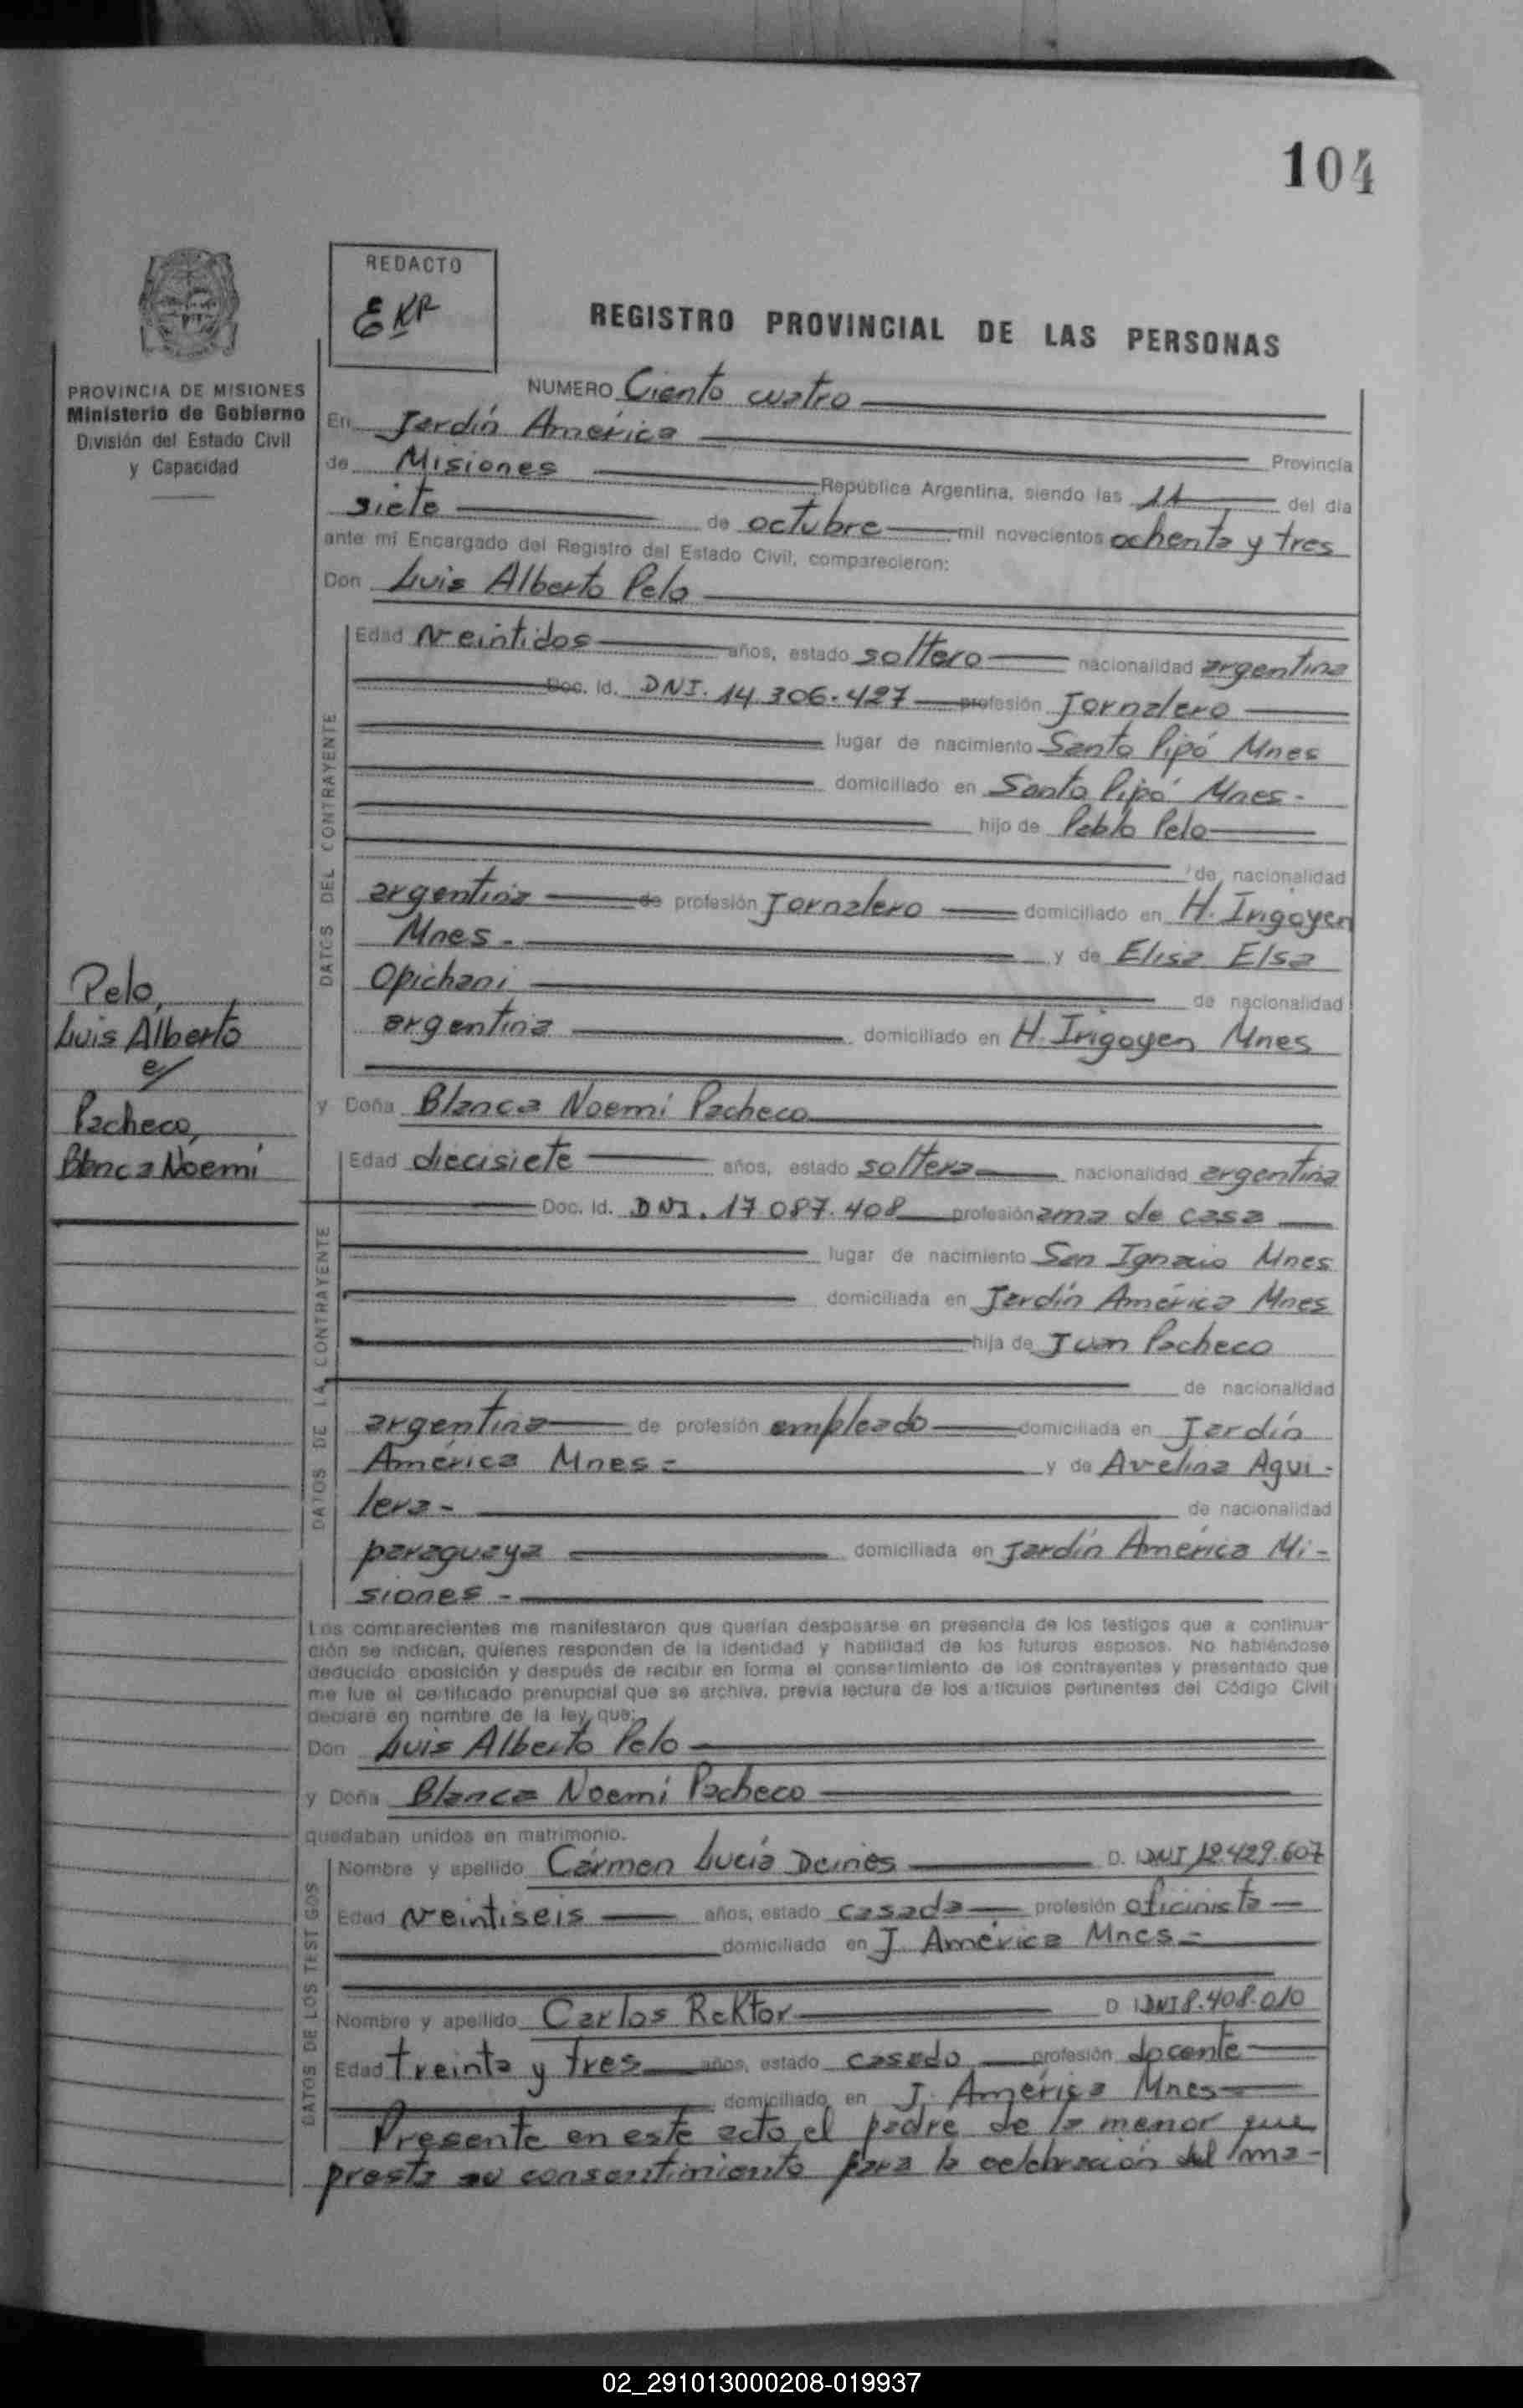 104
REDACTO
EKR
REGISTRO PROVINCIAL DE LAS PERSONAS
PROVINCIA DE MISIONES
Ministerio de Gobierno
División del Estado Civil
y Capacidad
NUMERO Ciento cuatro
En Jardín América
Provincia
de Misiones República Argentina, siendo las 11 del día
siete de octubre mil novecientos ochenta y tres
ante mi Encargado del Registro del Estado Civil, comparecieron:
Don Luis Alberto Pelo
DATOS DEL CONTRAYENTE
Edad Veintidos años, estado soltero nacionalidad argentina
Doc. Id. DNI. 14.306.427 profesión Jornalero
lugar de nacimiento Santo Pipó Mnes
domiciliado en Santo Pipó Mnes-
hijo de Pablo Pelo
de nacionalidad
argentina de profesión Jornalero domiciliado en H. Irigoyen
Mnes- y de Elisa Elsa
Opichani de nacionalidad
argentina domiciliado en H. Irigoyen Mnes
Pelo,
Luis Alberto
c/
Pacheco,
Blanca Noemí
y Doña Blanca Noemí Pacheco
DATOS DE LA CONTRAYENTE
Edad diecisiete años, estado soltera nacionalidad argentina
Doc. Id. DNI. 17.087.408 profesión ama de casa
lugar de nacimiento San Ignacio Mnes
domiciliada en Jardín América Mnes
hija de Juan Pacheco
de nacionalidad
argentina de profesión empleado domiciliada en Jardín
América Mnes- y de Avelina Agui-
lera- de nacionalidad
paraguaya domiciliada en Jardín América Mi-
siones-
Los comparecientes me manifestaron que querían desposarse en presencia de los testigos que a continua-
ción se indican, quienes responden de la identidad y habilidad de los futuros esposos. No habiéndose
deducido oposición y después de recibir en forma el consentimiento de los contrayentes y presentado que
me fue el certificado prenupcial que se archiva, previa lectura de los artículos pertinentes del Código Civil
declaré en nombre de la ley que:
Don Luis Alberto Pelo
y Doña Blanca Noemí Pacheco
quedaban unidos en matrimonio.
DATOS DE LOS TESTIGOS
Nombre y apellido Cármen Lucía Deines D. I. DNI 12.429.607
Edad Veintiseis años, estado casada profesión oficinista
domiciliado en J. América Mnes-
Nombre y apellido Carlos Rektor D. I. DNI 8.408.010
Edad treinta y tres años, estado casado profesión docente
domiciliado en J. América Mnes-
Presente en este acto el padre de la menor que
presta su consentimiento para la celebración del ma-
02_291013000208-019937